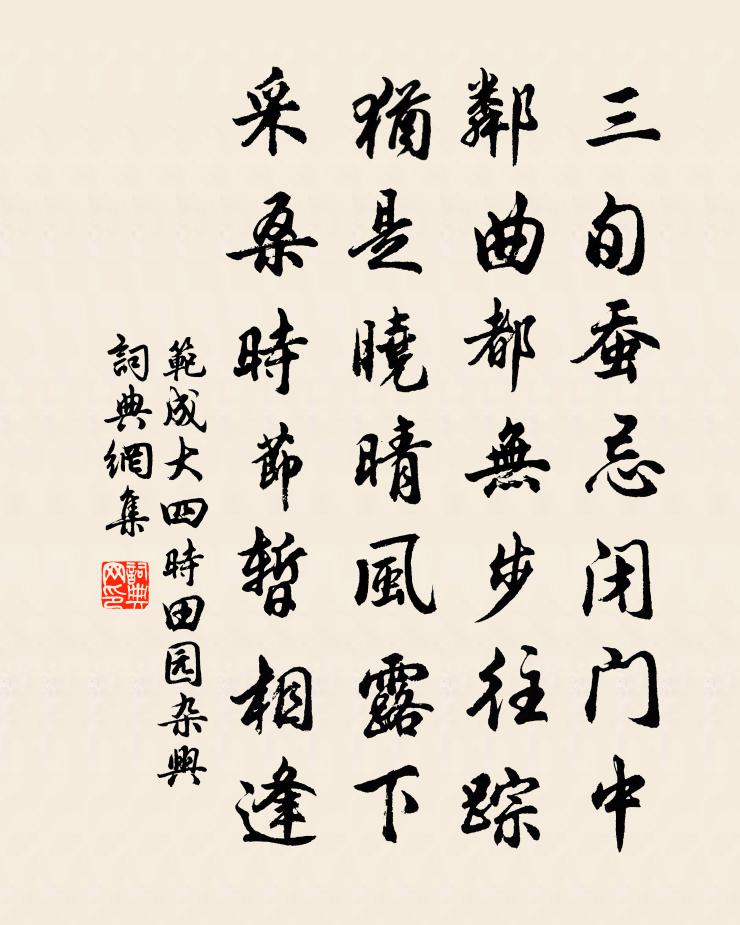 三旬蚕忌闭门中
鄰曲都無步往踪
猶是曉晴風露下
采桑時節暫相逢
範成大四時田园杂興
詞典網集
詞典
网印